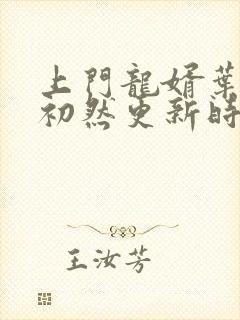 上門龍婿葉
初然更新時
王汝芳